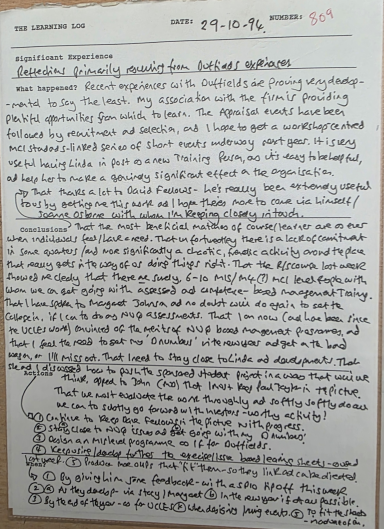 THE LEARNING LOG DATE: 29-10-94 NUMBER: 809
Significant Experience
Reflections primarily resulting from Duffields experiences
What happened? Recent experiences with Duffields are proving very develop-
-mental to say the least. My association with the firm is providing
plentiful opportunities from which to learn. The Appraisal events have been
followed by recruitment and selection, and I hope to get a workshop centred
MCI standards-linked series of short events underway next year. It is very
useful having Linda in post as a new Training Person, as it's easy to be helpful,
and help her to make a genuinely significant effect on the organisation.
→ That thanks a lot to David Fellows - he's really been extremely useful
to us by getting me this work and I hope there's more to come via himself/
Joanne Osborne with whom I'm keeping closely in touch.
Conclusions That the most beneficial matches of course/learner are as ever
when individuals feel/have a need. That unfortunately there is a lack of commitment
in some quarters/and more significantly a chaotic, frenetic activity around the place
that really gets in the way of doing things right. That the course last week
showed me clearly that there are, surely, 6-10 MIS/Mgr (?) MCI level people with
whom we can get going with assessed and competence-based management training.
That I have spoken to Margaret Johnson and no doubt will do again to get the
College in, if I can to do any NVQ assessments. That I am now (and have been since
the UCLES work) convinced of the merits of NVQ based management programmes, and
that I feel the need to get my 'D numbers' in the new year and get on the band
wagon, or I'll miss out. That I need to stay close to Linda and developments. That
she and I discussed how to push the sponsored student project in a way that will we
think, appeal to John (MD) that I must keep Paul Taylor in the picture.
That we must evaluate the work throughly and softly softly do all
we can to subtly go forward with Investors-worthy activity!
Actions
① Continue to keep Dave Fellows in the picture with progress.
② Stay close to NVQ issues and get going with my D numbers!
③ Design an MIS level programme as if for Duffields.
④ Keep using/develop further the exercise/issue based learning sheets - used
last year. ⑤ Produce mock ups that "fit" them - so they link and can be directed.
When?
① By giving him some feedback - with a SPIO RPOFF this week
② ④ As they develop - via Stacy/Margaret ⑥ In the new year if at all possible.
③ By the end of the year - as for UCLES ④ When designing/using events. ⑤ To fit the tasks
-and so on.